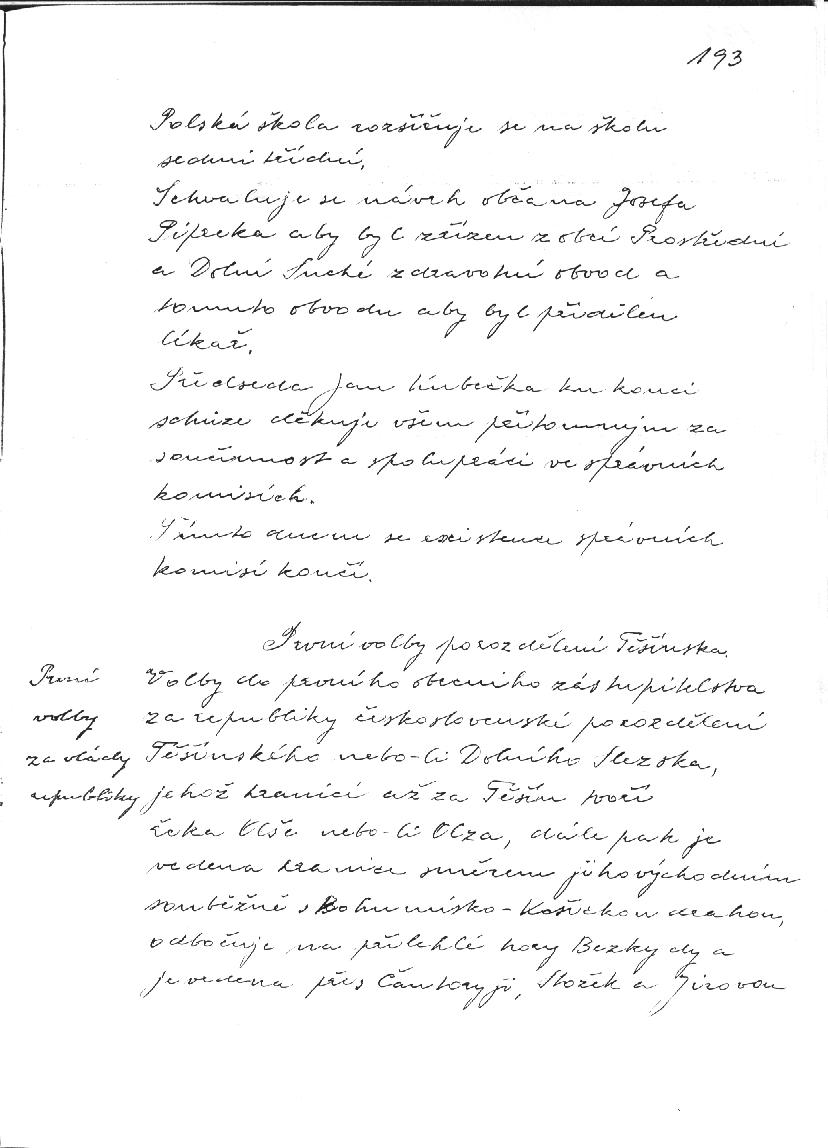 193
Polská škola rozšiřuje se na školu
sedmi třídní.
Schvaluje se návrh občana Josefa
Pipreka aby byl zřízen z obcí Prostřední
a Dolní Suché zdravotní obvod a
tomuto obvodu aby byl přidělen
lékař.
Předseda Jan Hubečka ku konci
schůze děkuje všem přítomným za
součinnost a spolupráci ve správních
komisích.
Tímto dnem se existence správních
komisí končí.
První volby po rozdělení Těšínska.
První
volby
za vlády
republiky
Volby do prvního obecního zástupitelstva
za republiky československé po rozdělení
Těšínského nebo-li Dolního Slezska,
jehož hranici až za Těšín tvoří
řeka Olše nebo-li Olza, dále pak je
vedena hranice směrem jihovýchodním
souběžně s Bohumínsko-Košickou drahou,
odbočuje na přilehlé hory Bezkydy a
je vedena přes Čantoryji, Stožek a Girovou